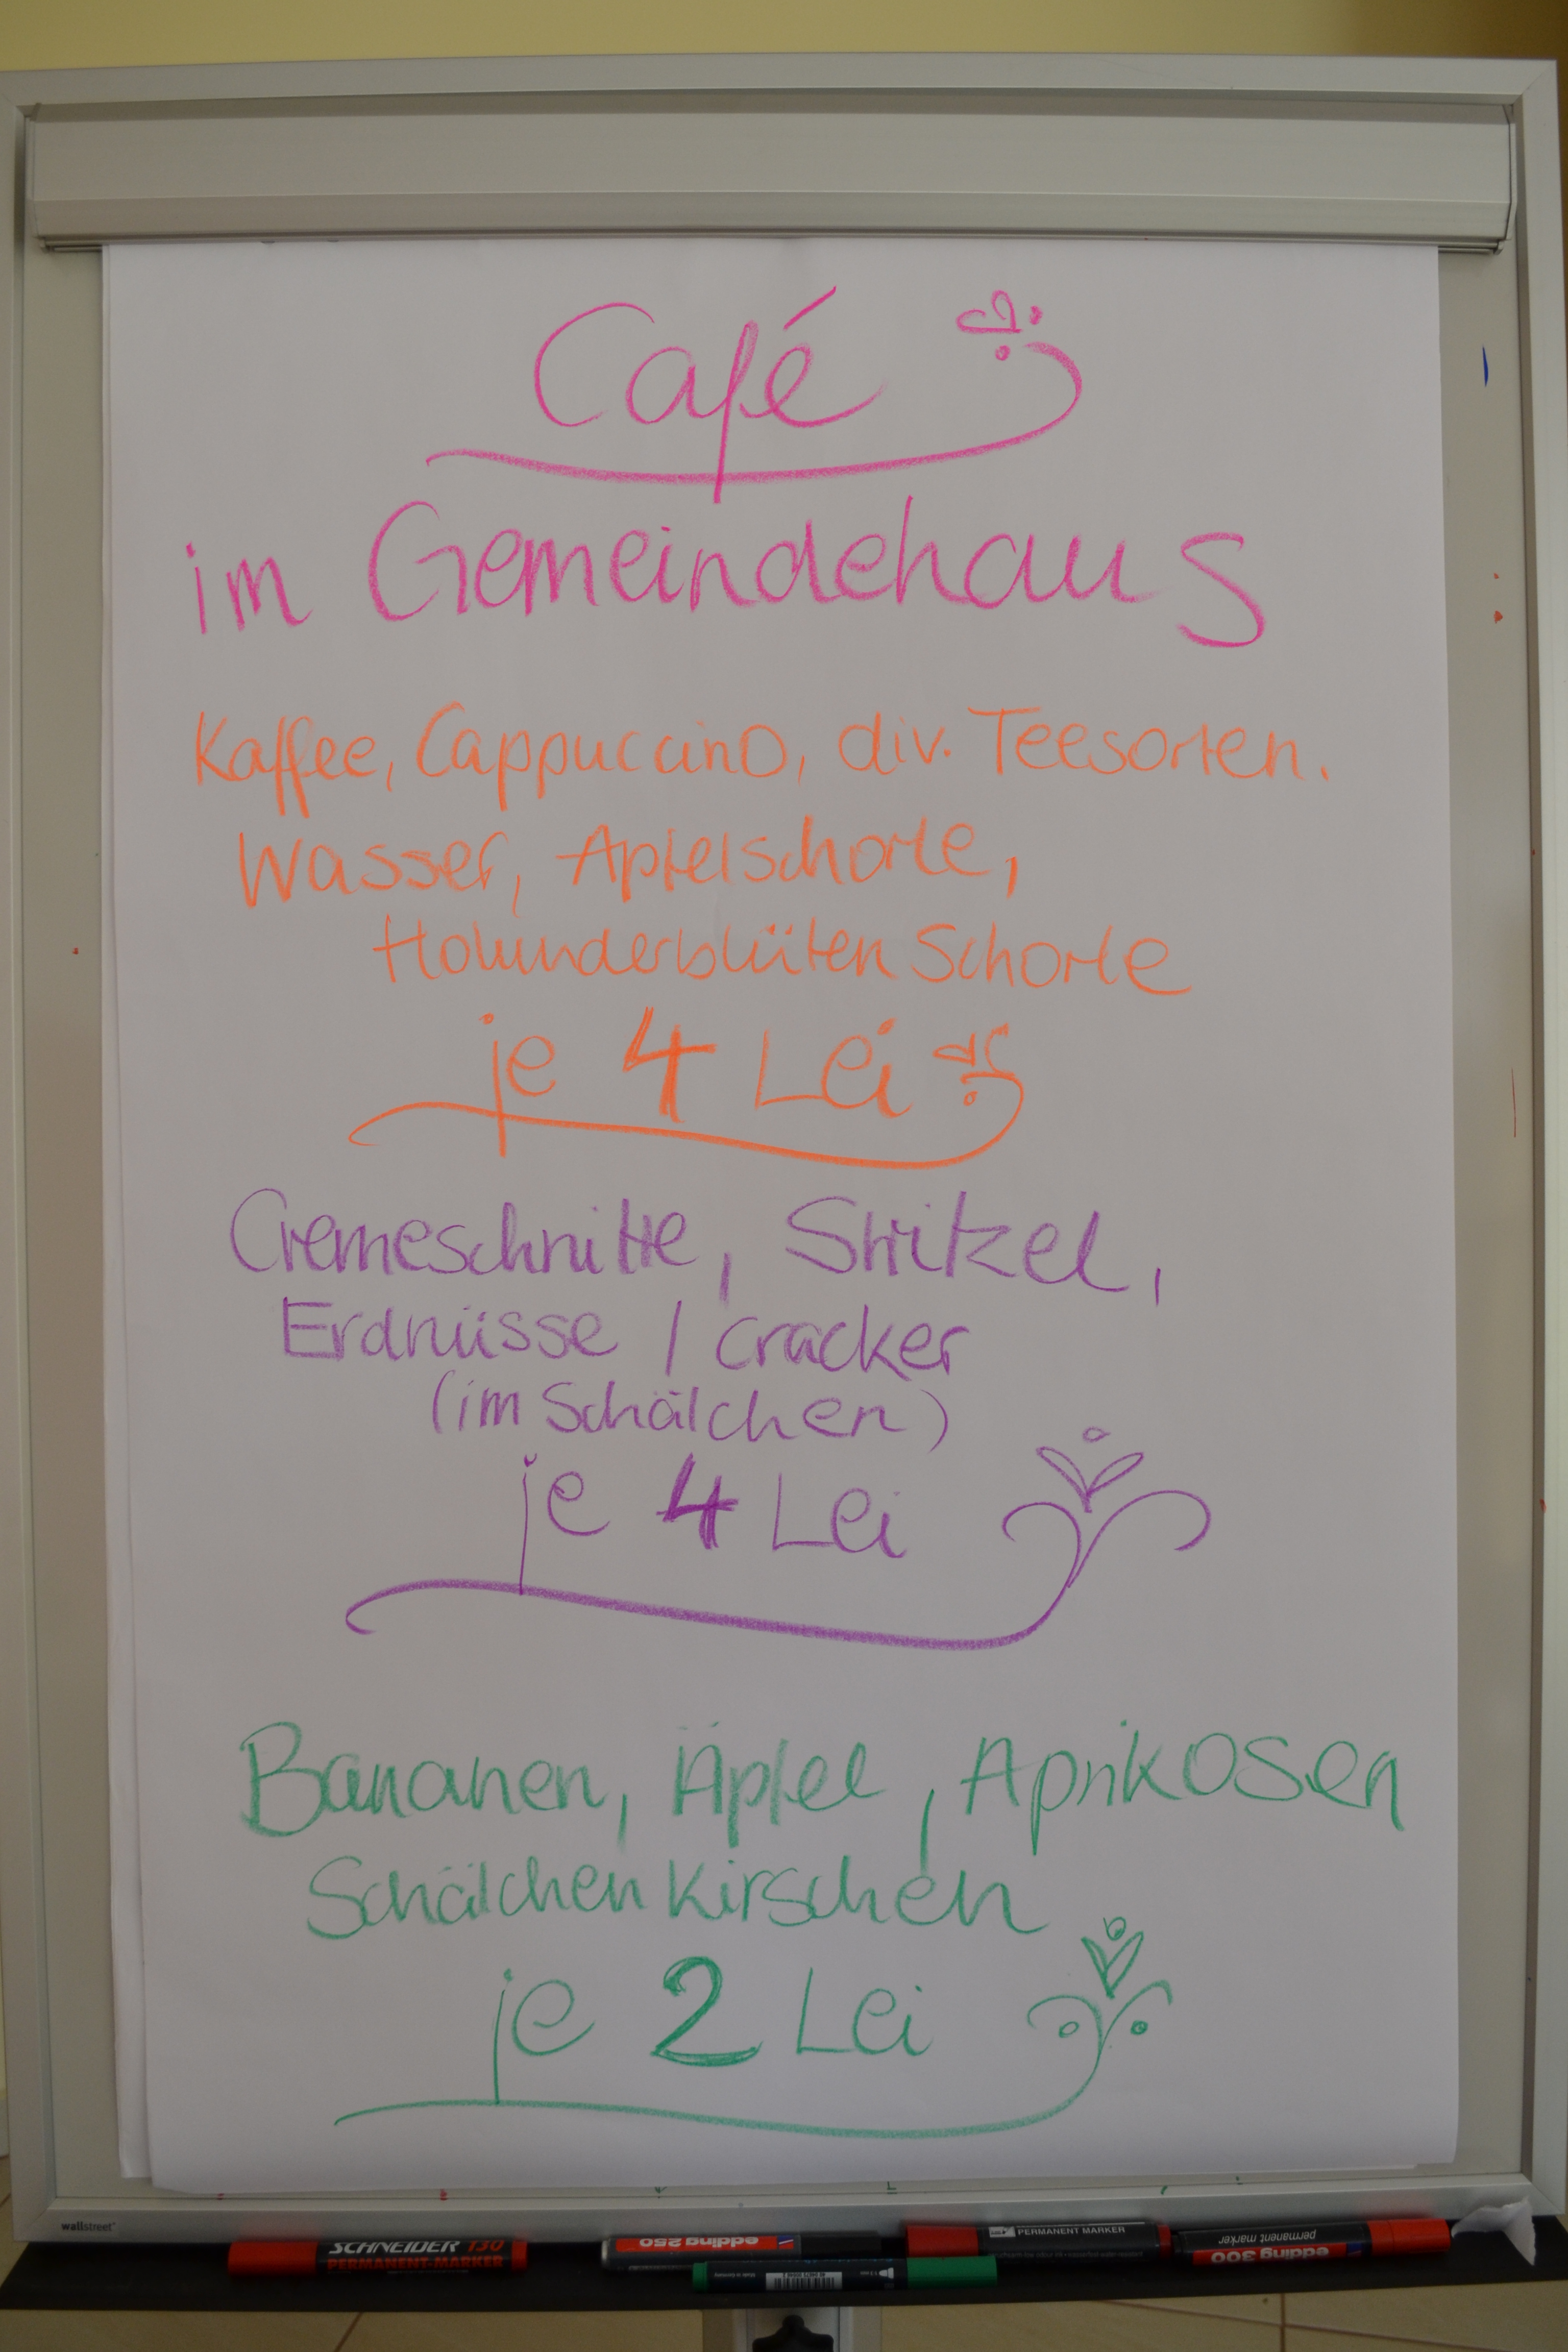 Café
im Gemeindehaus
Kaffee, Cappuccino, div. Teesorten.
Wasser, Apfelschorle,
Holunderblüten Schorle
je 4 Lei
Cremeschnitte, Stritzel,
Erdnüsse / cracker
(im Schälchen)
je 4 Lei
Bananen, Äpfel, Aprikosen
Schälchen Kirschen
je 2 Lei
wallstreet
SCHNEIDER 130
PERMANENT-MARKER
edding 250
PERMANENT MARKER
edding 300
permanent marker